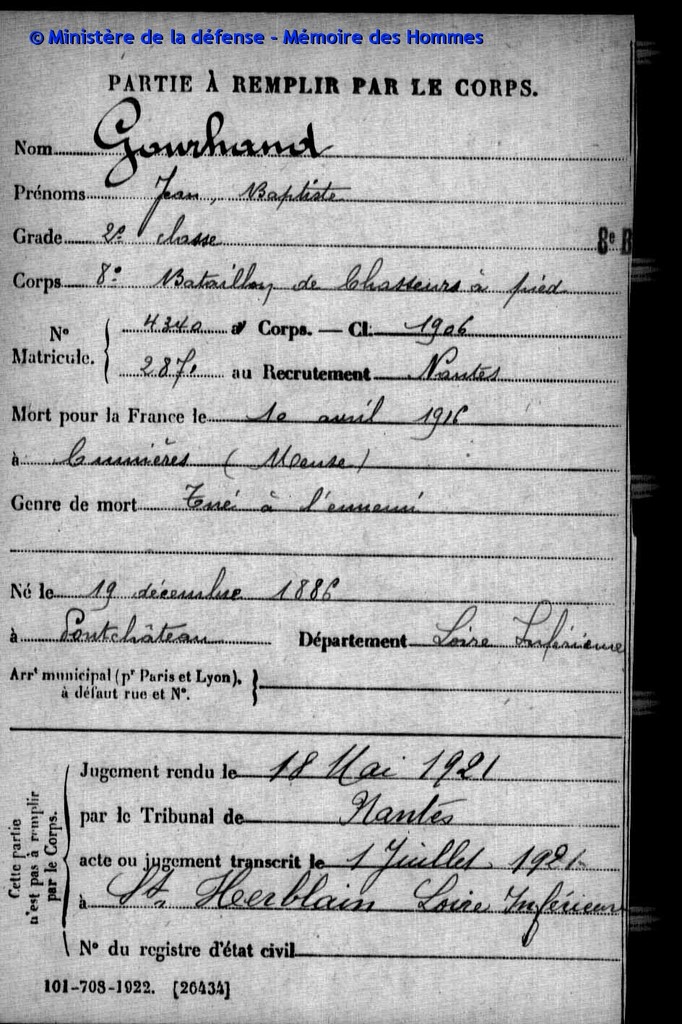 © Ministère de la défense - Mémoire des Hommes
PARTIE À REMPLIR PAR LE CORPS.
Nom Gourhand
Prénoms Jean, Baptiste
Grade 2e classe
8e B
Corps 8e Bataillon de Chasseurs à pied
N° Matricule.
4340 au Corps. — Cl. 1906
2870 au Recrutement Nantes
Mort pour la France le 10 avril 1916
à Cumières (Meuse)
Genre de mort Tué à l'ennemi
Né le 19 décembre 1886
à Pontchâteau Département Loire Inférieure
Arrt municipal (pr Paris et Lyon),
à défaut rue et N°.
Cette partie
n'est pas à remplir
par le Corps.
Jugement rendu le 18 Mai 1921
par le Tribunal de Nantes
acte ou jugement transcrit le 1 Juillet 1921
à St Herblain Loire Inférieure
N° du registre d'état civil
101-708-1922. [26434]